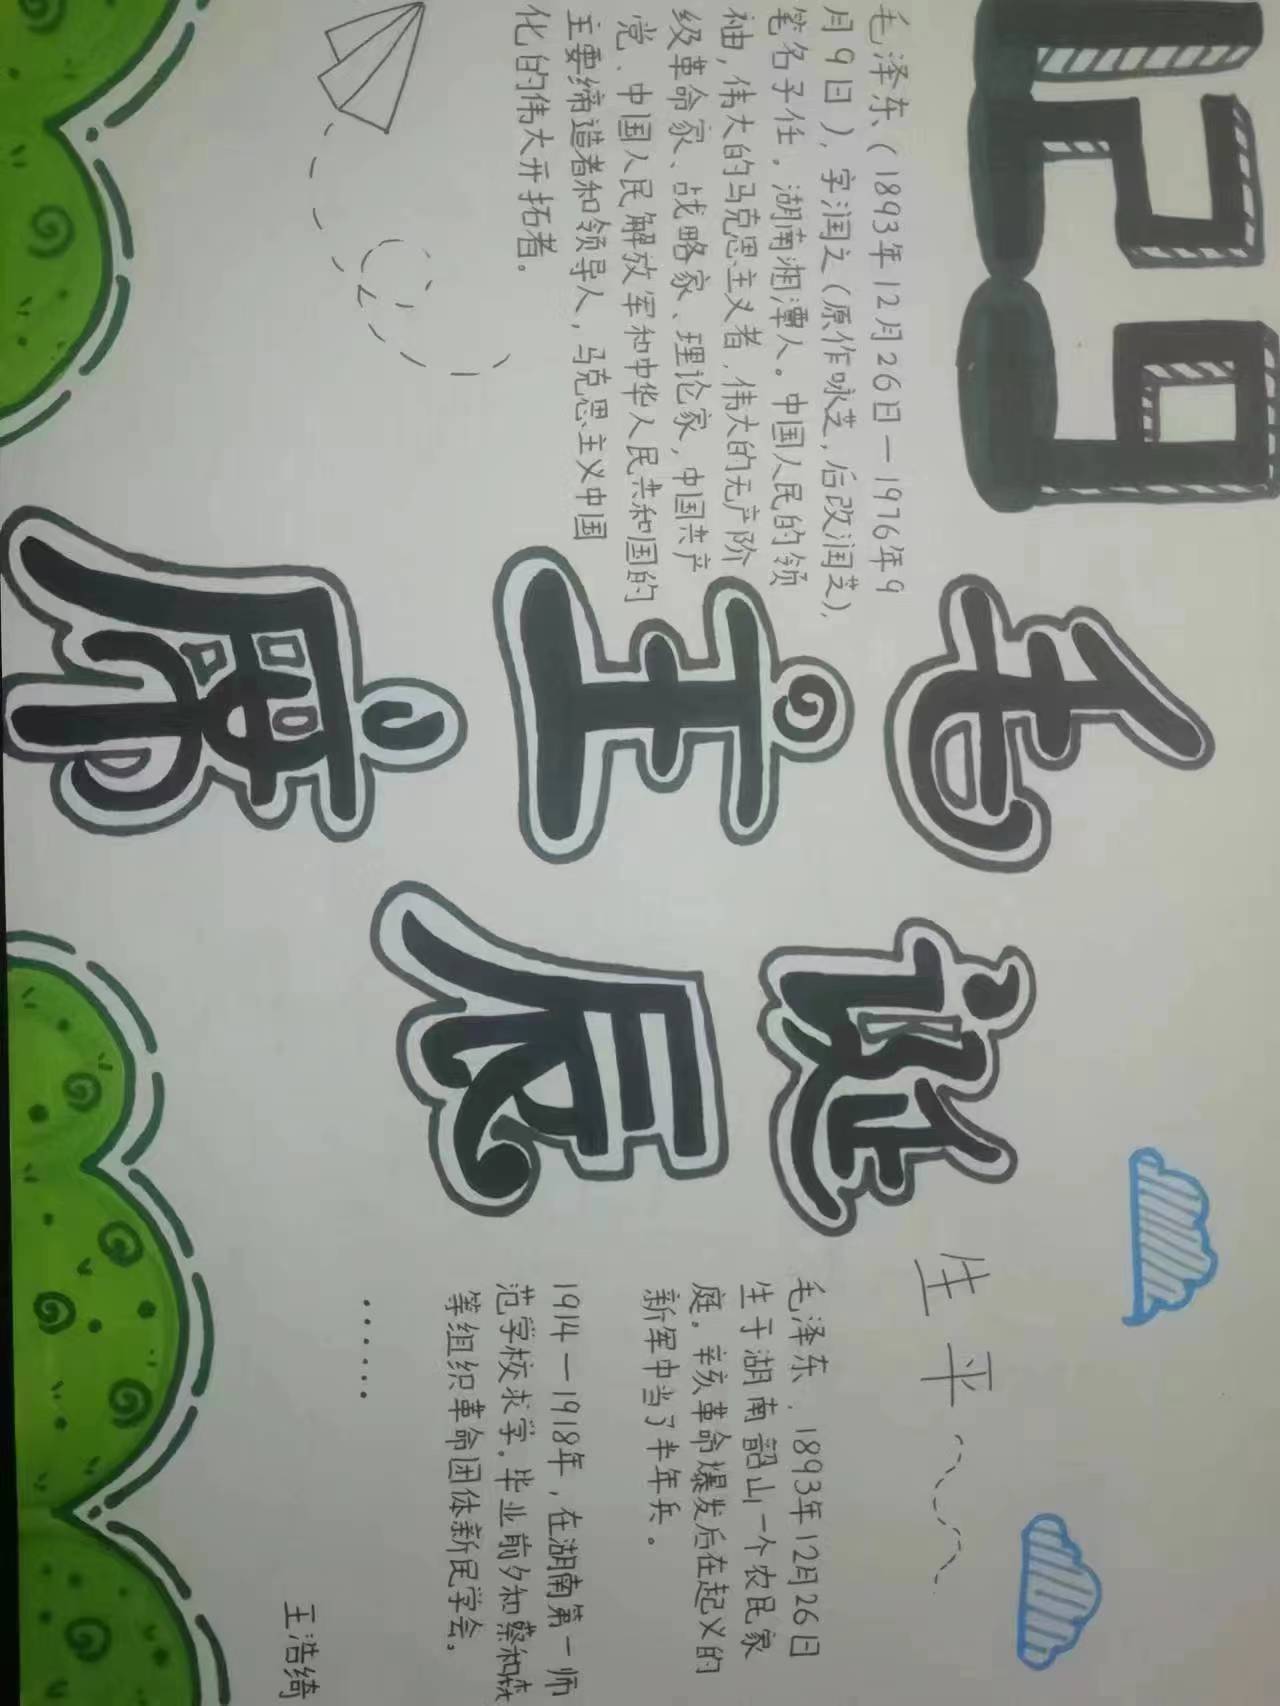 129
毛泽东(1893年12月26日一1976年9
月9日),字润之(原作咏芝,后改润芝),
笔名子任,湖南湘潭人。中国人民的领
袖,伟大的马克思主义者,伟大的无产阶
级革命家、战略家、理论家,中国共产
党、中国人民解放军和中华人民共和国的
主要缔造者和领导人,马克思主义中国
化的伟大开拓者。
毛主席
诞辰
生平
毛泽东,1893年12月26日
生于湖南韶山一个农民家
庭。辛亥革命爆发后在起义的
新军中当了半年兵。
1914一1918年,在湖南第一师
范学校求学。毕业前夕和蔡和森
等组织革命团体新民学会。
......
王浩绮